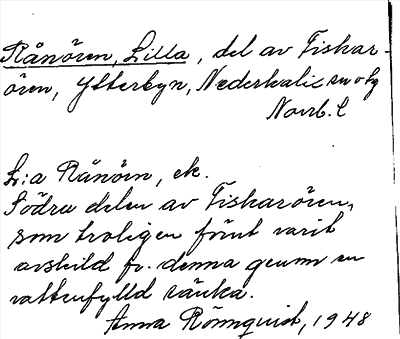 Rånören, Lilla, del av Fiskar-
ören, Ytterbyn, Nederkalix sn o hg
Norrb. l
L:a Rånörn, ek.
Södra delen av Fiskarören,
som troligen förut varit
avskild fr. denna genom en
vattenfylld sänka.
Anna Rönnquist, 1948